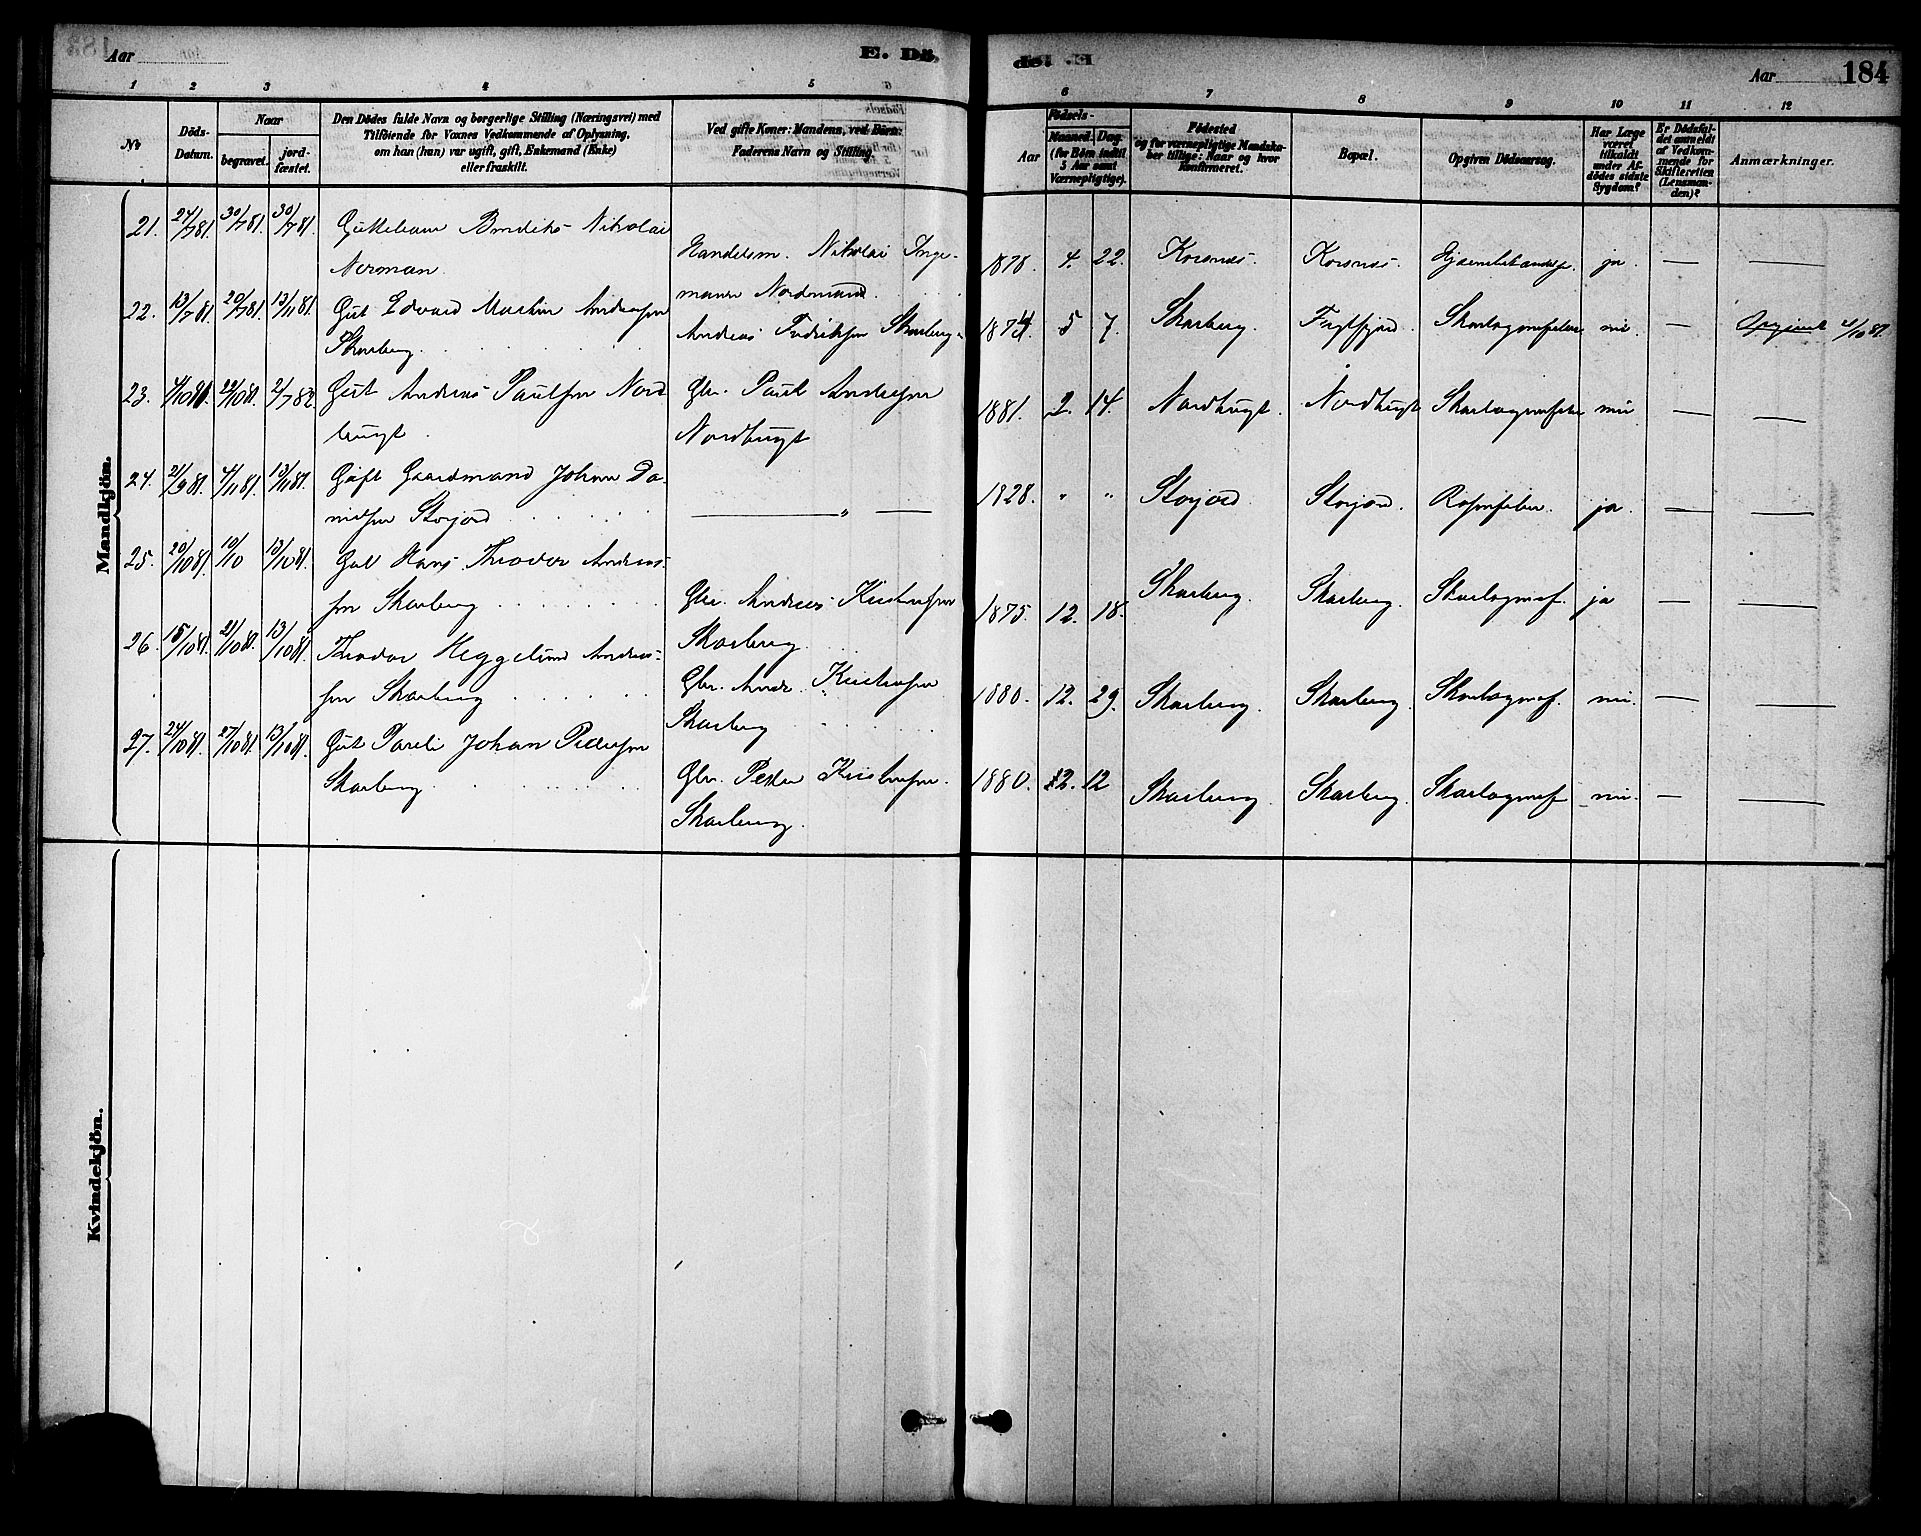 Aar
E. Dö-
de. E
Aar
184
1 2 3 4 5 6
6 7 8 9 10 11 12
No
Döds-
Datum.
Naar
begravet.
jord-
fæstet.
Den Dödes fulde Navn og borgerlige Stilling (Næringsvei) med
Tilföiende for Voxnes Vedkommende af Oplysning,
om han (hun) var ugift, gift, Enkemand (Enke)
eller fraskilt.
Ved gifte Koner: Mandens, ved Börn:
Faderens Navn og Stilling.
Aar
Födsels-
Maaned. Dag
(for Börn indtil
5 Aar samt
Værnepligtige).
Födested
og for værnepligtige Mandska-
ber tillige: Naar og hvor
konfirmeret.
Bopæl.
Opgiven Dödsaarsag.
Har Læge
været
tilkaldt
under Af-
dödes sidste
Sygdom?
Er Dödsfal-
det anmeldt
af Vedkom-
mende for
Skifteretten
(Lensman-
den)?
Anmærkninger.
Mandkjön.
21. 24/7 81. 30/7 81. 30/7 81. Nikolai
Norman
Handelsm. Nikolai Inge-
mann Nordmand
1878. 4. 22. Korsnes. Korsnes. ja. — —
22. 13/7 81. 20/7 81. 13/11 81. Gut Edvard Martin Andersen
Skarberg.
Andreas Fredriksen Skarberg.
5 7. Skarberg. Skarlagensfeber nei — 4/10 81.
23. 22/10 81. 2/7 82. Gut Andreas Paulsen Nord
bugt
Gbr. Paul Andersen
Nordbugt
1881. 2. 14. Nordbugt. Nordbugt Skarlagensfeber nei — —
24. 21/9 81. 4/11 81. 13/11 81. Gift Gaardmand Johan Da-
nielsen Storjord
— " —
1828. " " Storjord Storjord. Rosenfeber. ja. — —
25. 20/10 81. 13/10 81. Hans Theodor Andreas-
sen Skarberg
Gbr. Andreas Kristensen
Skarberg
1875. 12. 18. Skarberg. Skarberg. Skarlagensf. ja — —
26. 21/10 81. 13/10 81. Theodor Heggelund Andreas-
sen Skarberg
Gbr. Andr. Kristensen
Skarberg
1880. 12. 29. Skarberg. Skarberg. Skarlagensf. nei. — —
27. 24/10 81. 27/10 81. 13/10 81. Gut Pareli Johan Pedersen
Skarberg.
Gbr. Peder Kristensen.
Skarberg.
1880. 12 Skarberg. Skarberg. Skarlagensf nei. — —
Kvindekjön.